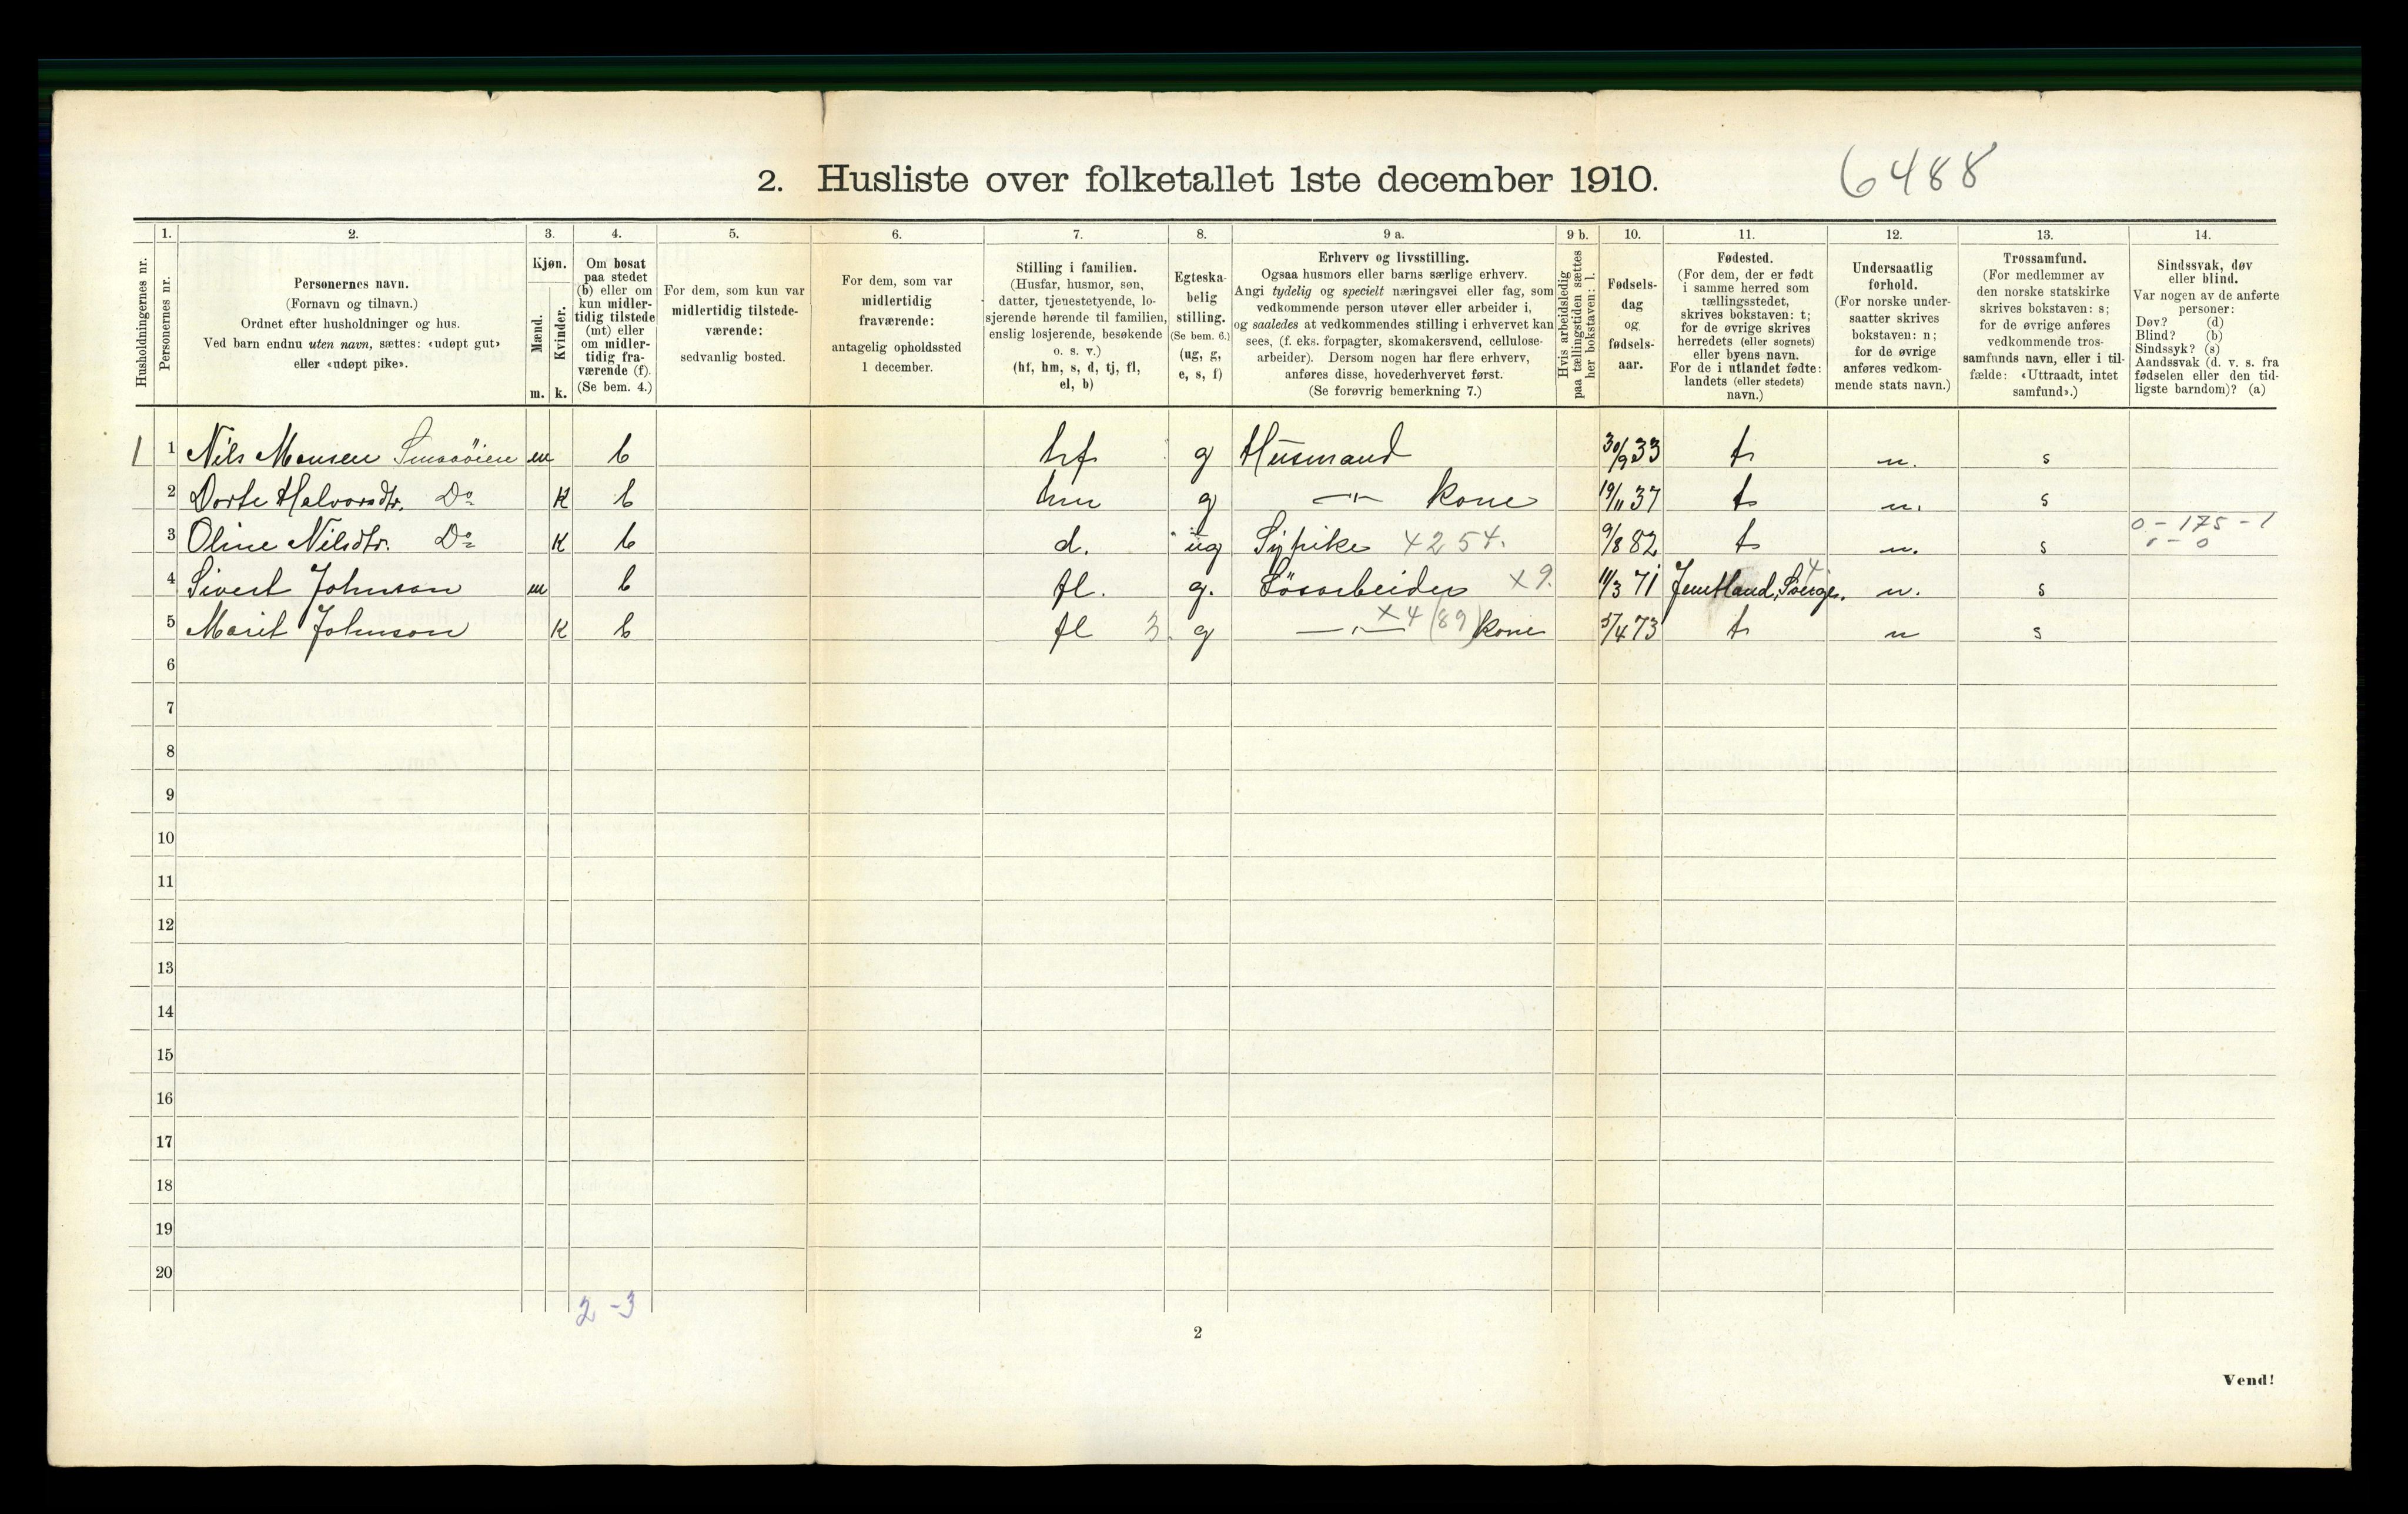 2. Husliste over folketallet 1ste december 1910.
6488
1.
2.
3.
4.
5.
6.
7.
8.
9 a.
9 b.
10.
11.
12.
13.
14.
Husholdningernes nr.
Personernes nr.
Personernes navn.
(Fornavn og tilnavn.)
Ordnet efter husholdninger og hus.
Ved barn endnu uten navn, sættes: «udøpt gut»
eller «udøpt pike».
Kjøn.
Mænd.
Kvinder.
m. k.
Om bosat
paa stedet
(b) eller om
kun midler-
tidig tilstede
(mt) eller
om midler-
tidig fra-
værende (f).
(Se bem. 4.)
For dem, som kun var
midlertidig tilstede-
værende:
sedvanlig bosted.
For dem, som var
midlertidig
fraværende:
antagelig opholdssted
1 december.
Stilling i familien.
(Husfar, husmor, søn,
datter, tjenestetyende, lo-
sjerende hørende til familien,
enslig losjerende, besøkende
o. s. v.)
(hf, hm, s, d, tj, fl,
el, b)
Egteska-
belig
stilling.
(Se bem. 6.)
(ug, g,
e, s, f)
Erhverv og livsstilling.
Ogsaa husmors eller barns særlige erhverv.
Angi tydelig og specielt næringsvei eller fag, som
vedkommende person utøver eller arbeider i,
og saaledes at vedkommendes stilling i erhvervet kan
sees, (f. eks. forpagter, skomakersvend, cellulose-
arbeider). Dersom nogen har flere erhverv,
anføres disse, hovederhvervet først.
(Se forøvrig bemerkning 7.)
Hvis arbeidsledig
paa tællingstiden sættes
her bokstaven: l.
Fødsels-
dag
og
fødsels-
aar.
Fødested.
(For dem, der er født
i samme herred som
tællingsstedet,
skrives bokstaven: t;
for de øvrige skrives
herredets (eller sognets)
eller byens navn.
For de i utlandet fødte:
landets (eller stedets)
navn.)
Undersaatlig
forhold.
(For norske under-
saatter skrives
bokstaven: n;
for de øvrige
anføres vedkom-
mende stats navn.)
Trossamfund.
(For medlemmer av
den norske statskirke
skrives bokstaven: s;
for de øvrige anføres
vedkommende tros-
samfunds navn, eller i til-
fælde: «Uttraadt, intet
samfund».)
Sindssvak, døv
eller blind.
Var nogen av de anførte
personer:
Døv? (d)
Blind? (b)
Sindssyk? (s)
Aandssvak (d. v. s. fra
fødselen eller den tid-
ligste barndom)? (a)
1 1 Nils Monsen Smaaöien m b hf g Husmand 30/9 33 t n. s
2 Dorte Halvorsdtr. Do K b hm g —"— kone 19/11 37 t n. s
3 Oline Nilsdtr. Do K b d. ug Sypike 4254. 9/8 82 t n. s 0 - 175 - 1
4 Sivert Johnson m b fl. g. Løsarbeider x9. 11/3 71 Jemtland, Sverige. 4 n. s
5 Marit Johnson K b fl 3 g —"— x4 (89) kone 5/4 73 t n s
6
7
8
9
10
11
12
13
14
15
16
17
18
19
20
2 - 3
2
Vend!